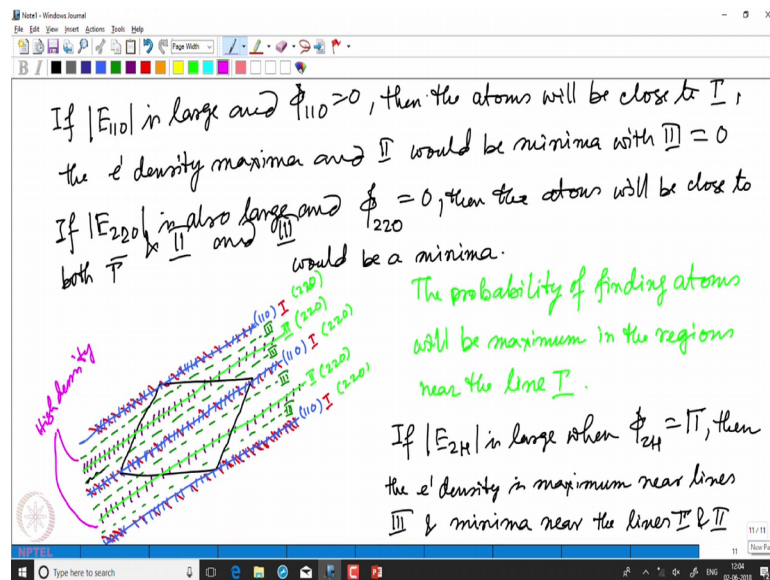 Note1 - Windows Journal
File Edit View Insert Actions Tools Help
Page Width
B I
If |E110| is large and ϕ110=0, then the atoms will be close to I,
the e⁻ density maxima and II would be minima with III = 0
If |E220| is also large and ϕ220 = 0, then the atoms will be close to
both I & II and III
would be a minima.
The probability of finding atoms
will be maximum in the regions
near the line I.
If |E2H| is large when ϕ2H = π, then
the e⁻ density is maximum near lines
III & minima near the lines I & II
High density
(110) I (220)
III
II (220)
III
(110) I (220)
III
II (220)
III
(110) I (220)
NPTEL
11 / 11
11
New Pa
Type here to search
ENG
12:04
02-06-2018